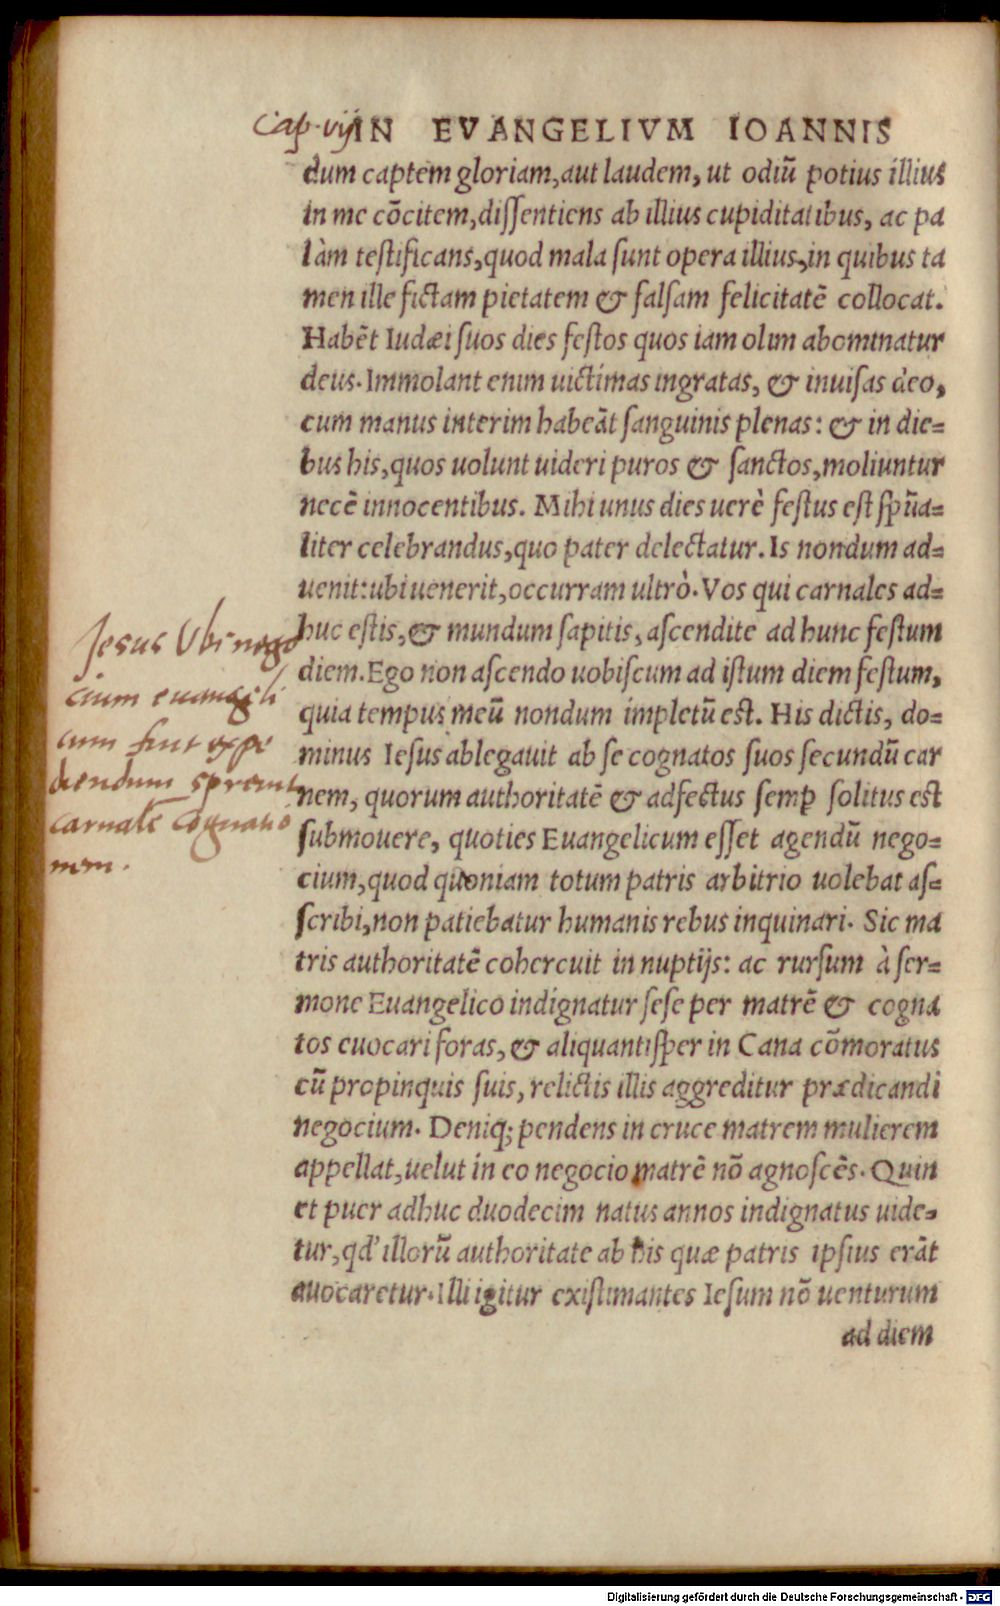 Cap. vij IN EVANGELIVM IOANNIS
dum captem gloriam, aut laudem, ut odiū potius illius
in me cōcitem, dissentiens ab illius cupiditatibus, ac pa
làm testificans, quod mala sunt opera illius, in quibus ta
men ille fictam pietatem & falsam felicitatē collocat.
Habēt Iudæi suos dies festos quos iam olim abominatur
deus. Immolant enim uictimas ingratas, & inuisas deo,
cum manus interim habeāt sanguinis plenas: & in die=
bus his, quos uolunt uideri puros & sanctos, moliuntur
necē innocentibus. Mihi unus dies uerè festus est sp̄ua=
liter celebrandus, quo pater delectatur. Is nondum ad=
uenit: ubi uenerit, occurram ultrò. Vos qui carnales ad=
huc estis, & mundum sapitis, ascendite ad hunc festum
diem. Ego non ascendo uobiscum ad istum diem festum,
quia tempus meū nondum impletū est. His dictis, do=
minus Iesus ablegauit ab se cognatos suos secundū car
nem, quorum authoritatē & adfectus semꝑ solitus est
submouere, quoties Euangelicum esset agendū nego=
cium, quod quoniam totum patris arbitrio uolebat as=
scribi, non patiebatur humanis rebus inquinari. Sic ma
tris authoritatē cohercuit in nuptijs: ac rursum à ser=
mone Euangelico indignatur sese per matrē & cogna
tos euocari foras, & aliquantisper in Cana cōmoratus
cū propinquis suis, relictis illis aggreditur prædicandi
negocium. Deniq; pendens in cruce matrem mulierem
appellat, uelut in eo negocio matrē nō agnoscēs. Quin
et puer adhuc duodecim natus annos indignatus uide=
tur, qd' illorū authoritate ab his quæ patris ipsius erāt
auocaretur. Illi igitur existimantes Iesum nō uenturum
ad diem
Jesus Ubi nego
cium euangeli
cum sint expe
diendum
carnalē cognatio
nem.
Digitalisierung gefördert durch die Deutsche Forschungsgemeinschaft - DFG